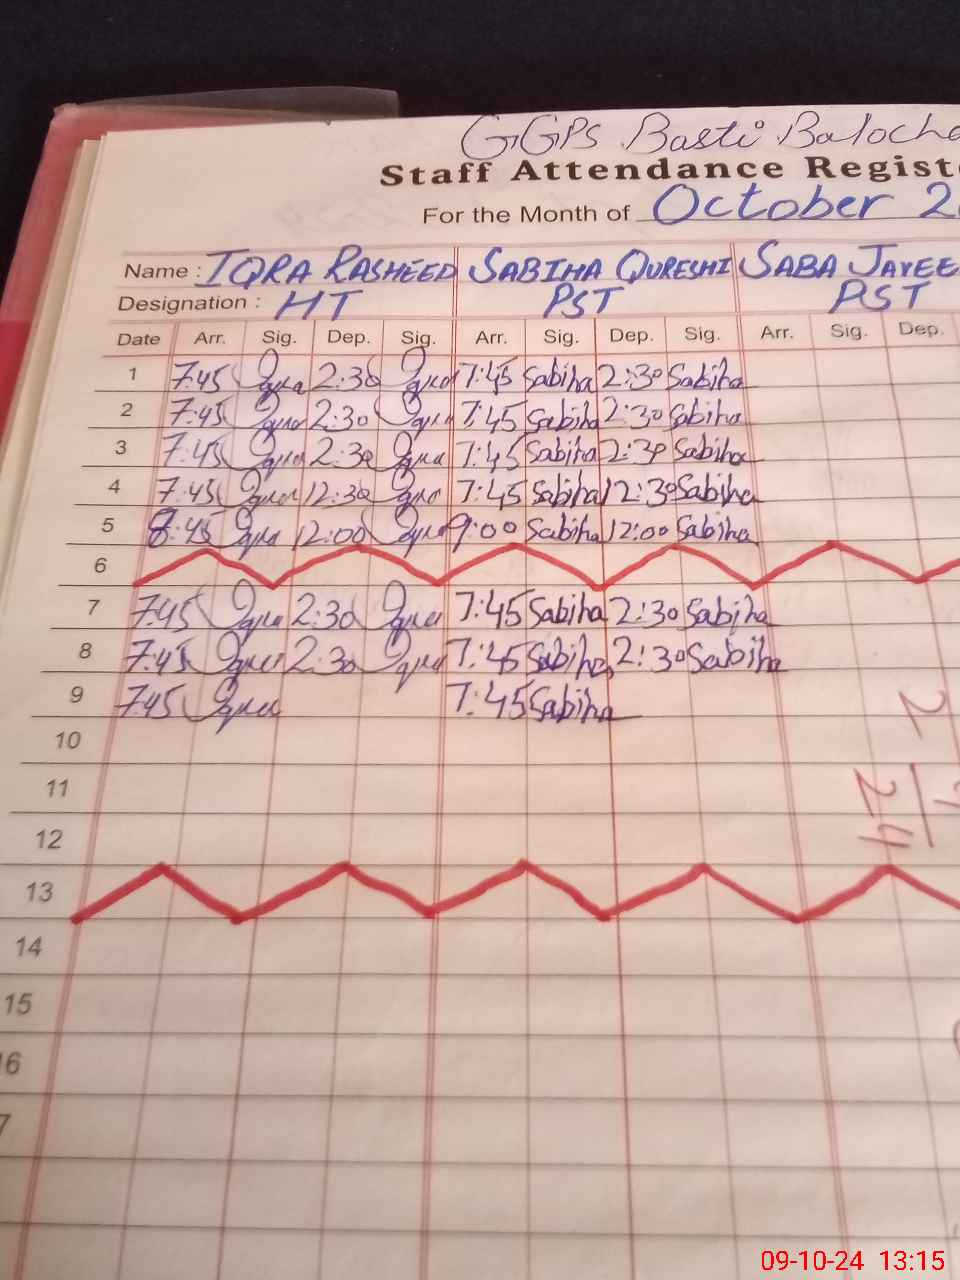 GGPS Basti Baloch
Staff Attendance Regist
For the Month of October 2
Name : IQRA RASHEED SABIHA QURESHI SABA JAVEE
Designation : HT PST PST
Date Arr. Sig. Dep. Sig. Arr. Sig. Dep. Sig. Arr. Sig. Dep.
1 7:45 Iqra 2:30 Iqra 7:45 Sabiha 2:30 Sabiha
2 7:45 Iqra 2:30 Iqra 7:45 Sabiha 2:30 Sabiha
3 7:45 Iqra 2:30 Iqra 7:45 Sabiha 2:30 Sabiha
4 7:45 Iqra 12:30 Iqra 7:45 Sabiha 12:30 Sabiha
5 8:45 Iqra 12:00 Iqra 9:00 Sabiha 12:00 Sabiha
6
7 7:45 Iqra 2:30 Iqra 7:45 Sabiha 2:30 Sabiha
8 7:45 Iqra 2:30 Iqra 7:45 Sabiha 2:30 Sabiha
9 7:45 Iqra 7:45 Sabiha
10
11
12
13
14
15
16
7
2
24
09-10-24 13:15